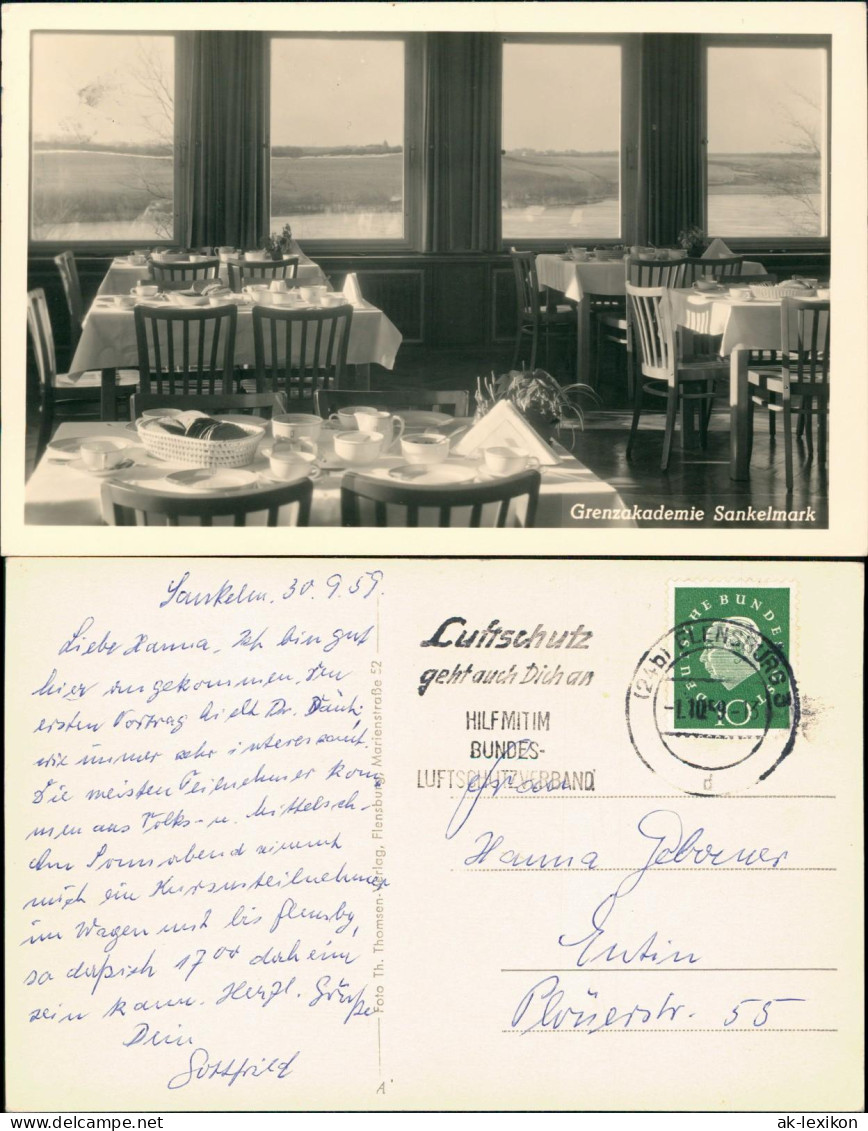 Grenzakademie Sankelmark
Sankelm. 30.9.59.
Liebe Hanna, Ich bin gut
hier angekommen. Den
ersten Vortrag hielt Dr.
wie immer sehr interessant.
Die meisten Teilnehmer kom-
men aus Volks- u. Mittelsch-
Am Sonnabend nimmt
mich ein Kursusteilnehmer
im Wagen mit bis Flensbg,
so daß ich 17⁰⁰ daheim
sein kann. Herzl. Grüße
Dein
Gottfried
Foto Th. Thomsen-Verlag, Flensburg, Marienstraße 52
A
Luftschutz
geht auch Dich an
HILF MIT IM
BUNDES-
LUFTSCHUTZVERBAND
DEUTSCHE BUNDESPOST
10
(24b) FLENSBURG 3
-1.10.59-
d
Frau
Hanna
Eutin
Plönerstr. 55
www.ak-ansichtskarten.de
ak-lexikon